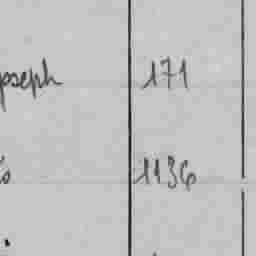 oseph 171
1136